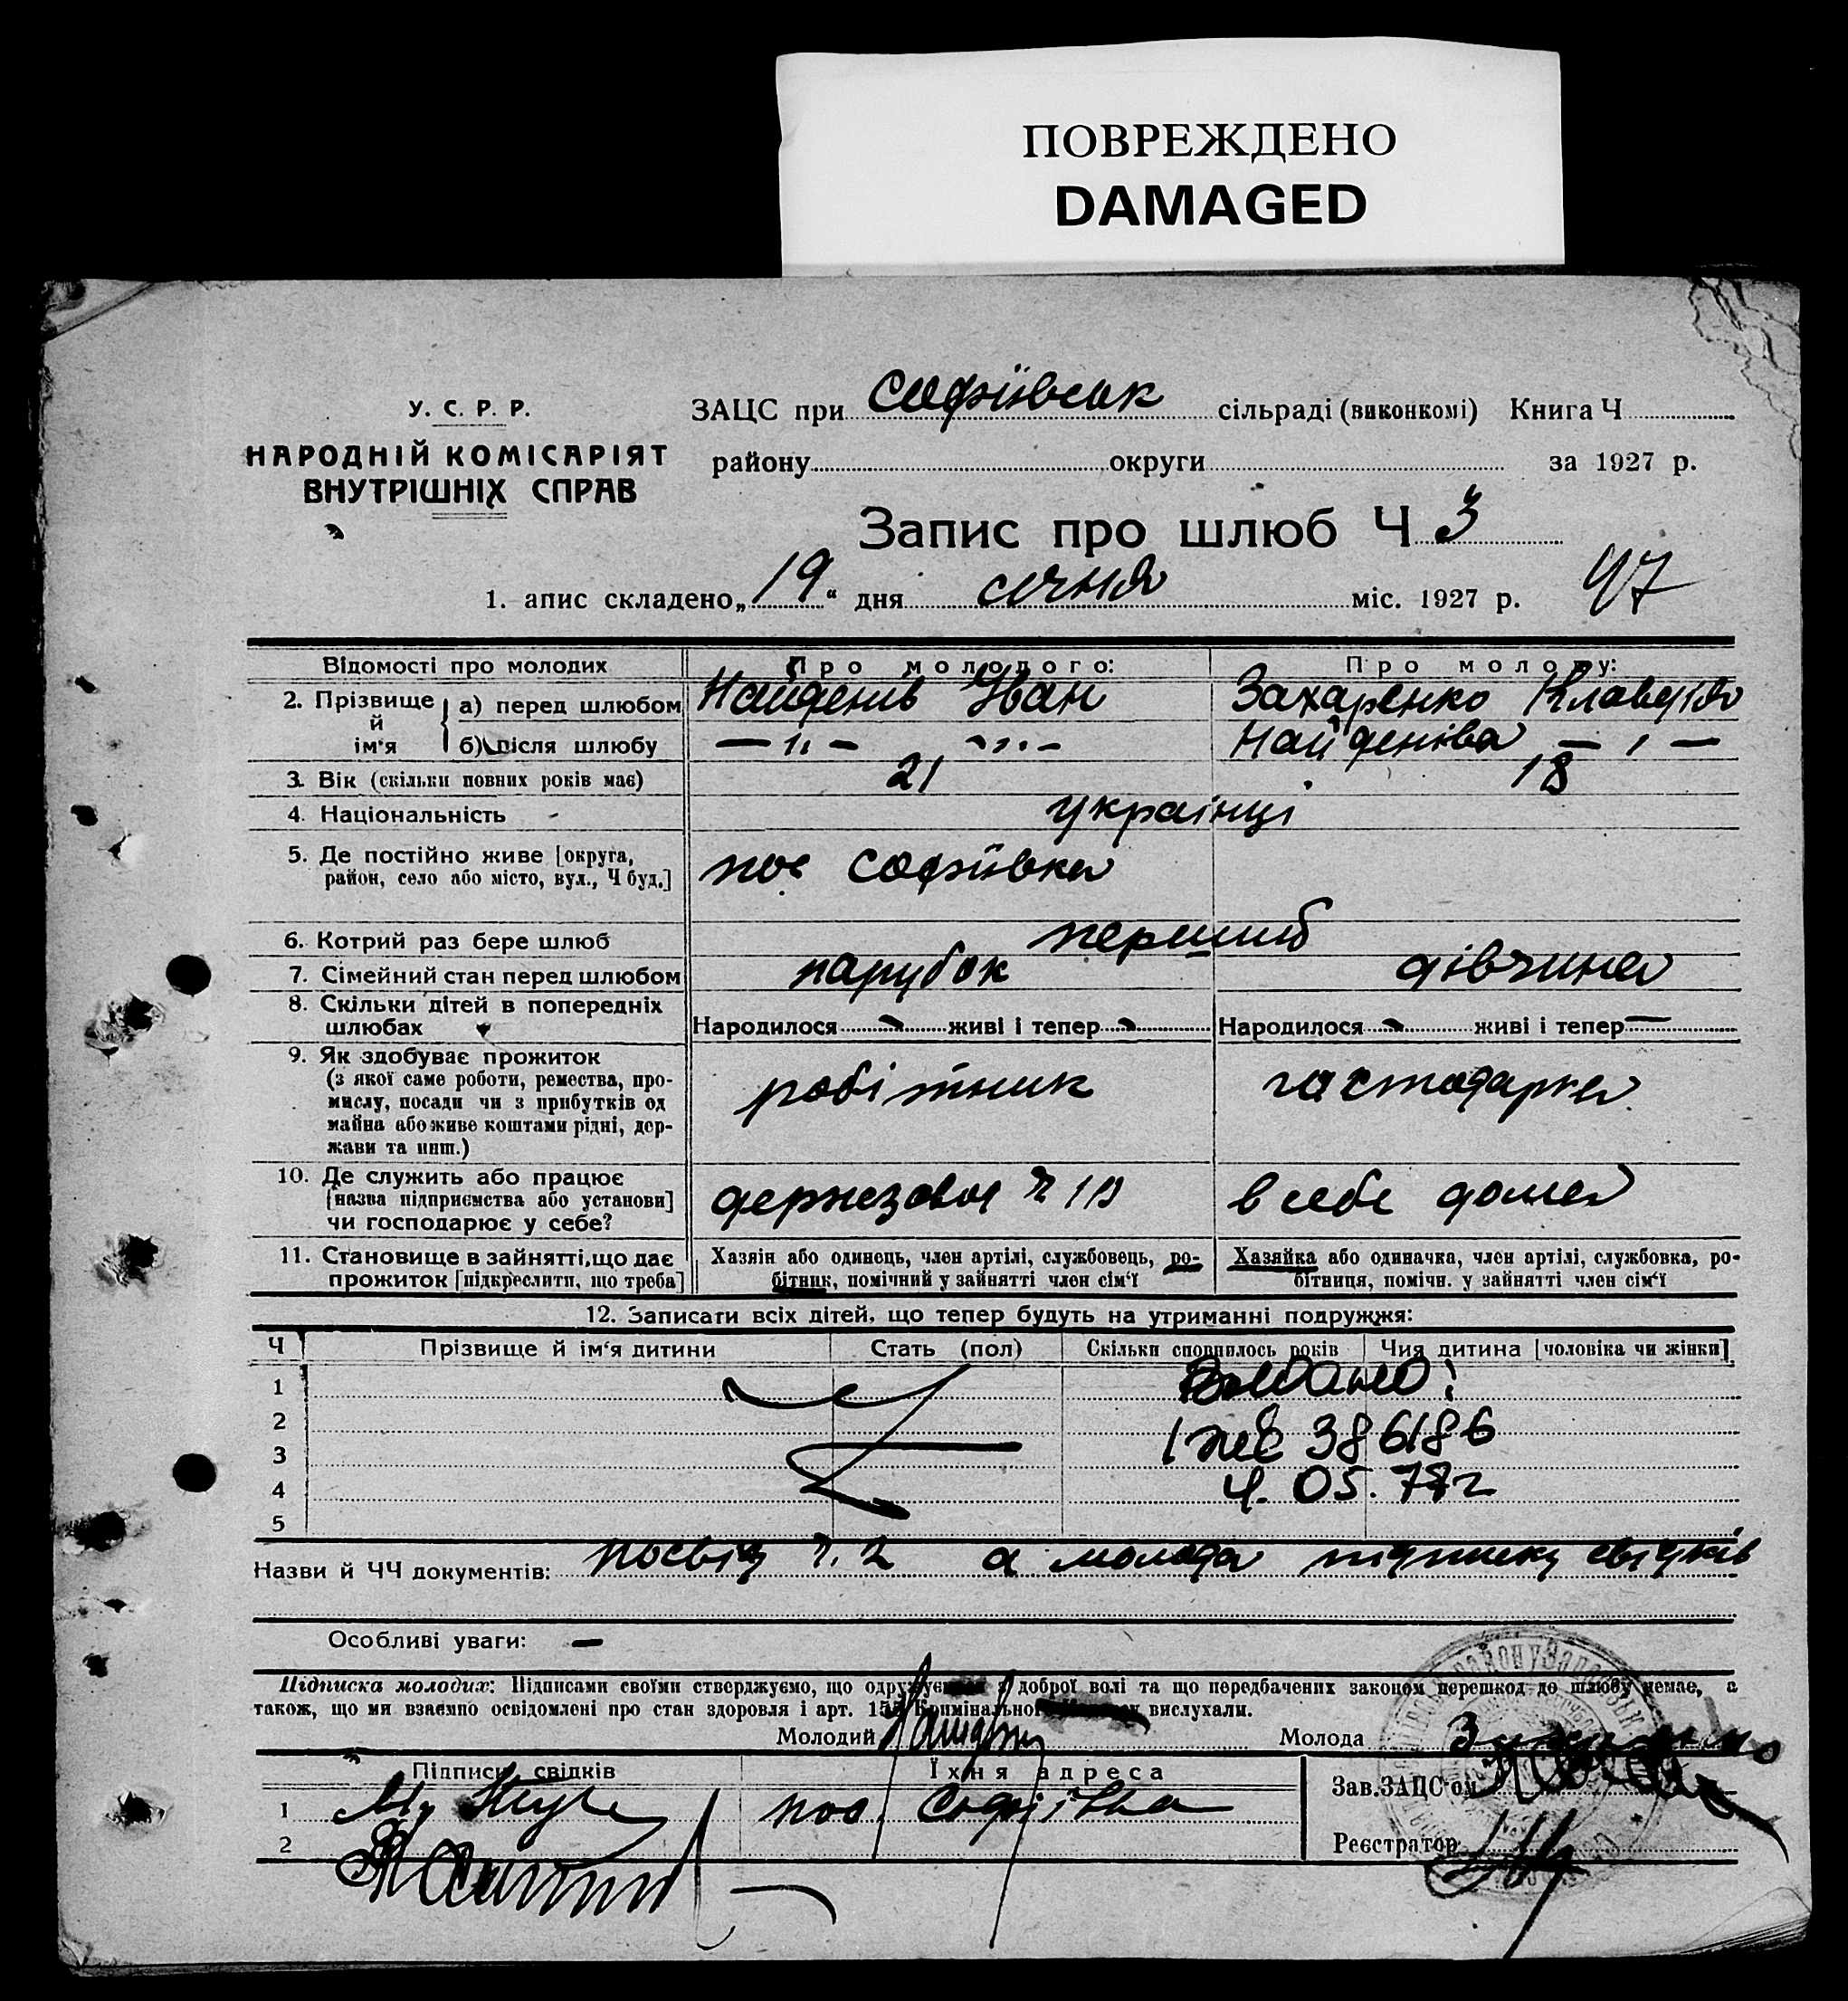 ПОВРЕЖДЕНО
DAMAGED
У. С. Р. Р.
НАРОДНІЙ КОМІСАРІЯТ
ВНУТРІШНІХ СПРАВ
ЗАЦС при Софіївськ сільраді (виконкомі) Книга Ч
району округи за 1927 р.
Запис про шлюб Ч 3
1. апис складено „19“ дня січня міс. 1927 р. 47
Відомості про молодих Про молодого: Про молоду:
2. Прізвище й ім'я а) перед шлюбом Найденів Іван Захаренко Клавдія
б) після шлюбу — „ — — „ — Найденіва — „ —
3. Вік (скільки повних років має) 21 18
4. Національність українці
5. Де постійно живе [округа, район, село або місто, вул., Ч буд.] пос Софіївка
6. Котрий раз бере шлюб перший
7. Сімейний стан перед шлюбом парубок дівчина
8. Скільки дітей в попередніх шлюбах Народилося — живі і тепер — Народилося — живі і тепер —
9. Як здобуває прожиток
(з якої саме роботи, ремества, про-
мислу, посади чи з прибутків од
майна або живе коштами рідні, дер-
жави та инш.)
робітник
гасподарка
10. Де служить або працює
[назва підприємства або установи]
чи господарює у себе?
держзавод
в себе дома
11. Становище в зайнятті, що дає
прожиток [підкреслити, що треба]
Хазяін або одинець, член артілі, службовець, ро-
бітник, помічний у зайнятті член сім'ї
Хазяйка або одиначка, член артілі, службовка, ро-
бітниця, помічн. у зайнятті член сім'ї
12. Записати всіх дітей, що тепер будуть на утриманні подружжя:
Ч Прізвище й ім'я дитини Стать (пол) Скільки сповнилось років Чия дитина [чоловіка чи жінки]
1
2 386186
3
4 4. 05.
5
Назви й ЧЧ документів: посвід ч. 2 а молода підписку свідків
Особливі уваги: —
Підписка молодих: Підписами своїми стверджуємо, що одружуємося з доброї волі та що передбачених законом перешкод до шлюбу немає, а
також, що ми взаємно освідомлені про стан здоровля і арт. 155 Кримінального вислухали.
Молодий Молода
Підписи свідків Їхня адреса Зав. ЗАЦС'ом
1 пос. Софіївка
2 Реєстратор